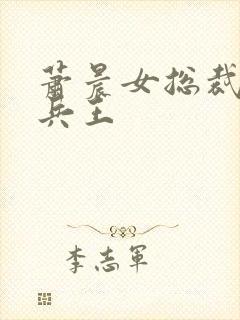 萧晨女总裁
兵王
李志军